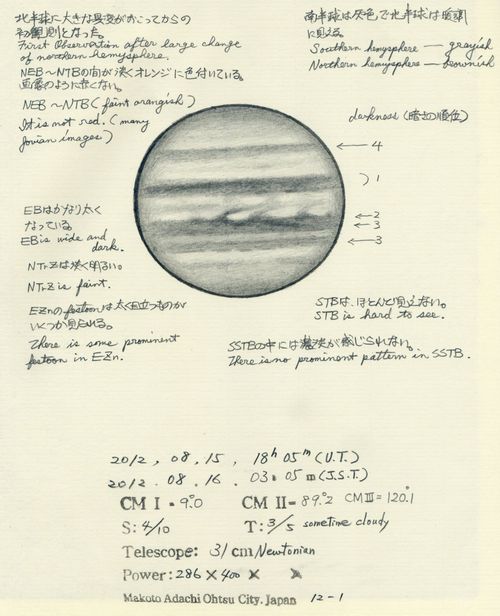 北半球に大きな異変がおこってからの
初観測となった。
First Observation after large change
of northern hemysphere.
NEB〜NTBの向が淡くオレンジに色付いている。
画像のように赤くない。
NEB〜NTB (faint orangish)
It is not red. (many
Jovian images)
南半球は灰色で北半球は
に見える。
Southern hemysphere — grayish
Northern hemysphere — brownish
darkness (暗さの順位)
4
1
2
3
3
EBはかなり太く
なっている。
EB is wide and
dark.
NTrZは淡く明るい。
NTrZ is faint.
EZnのfestoonは太く目立つものが
いくつか見られる。
There is some prominent
festoon in EZn.
STBは、ほとんど見えない。
STB is hard to see.
SSTBの中には濃淡が感じられない。
There is no prominent pattern in SSTB.
2012, 08, 15, 18h 05m (U.T.)
2012. 08. 16. 03: 05 m (J.S.T.)
CM I = 9.°0 CM II = 89.°2 CM III = 120.°1
S: 4/10 T: 3/5 sometime cloudy
Telescope: 31 cm/Newtonian
Power: 286 × 400 × ×
Makoto Adachi Ohtsu City. Japan 12-1